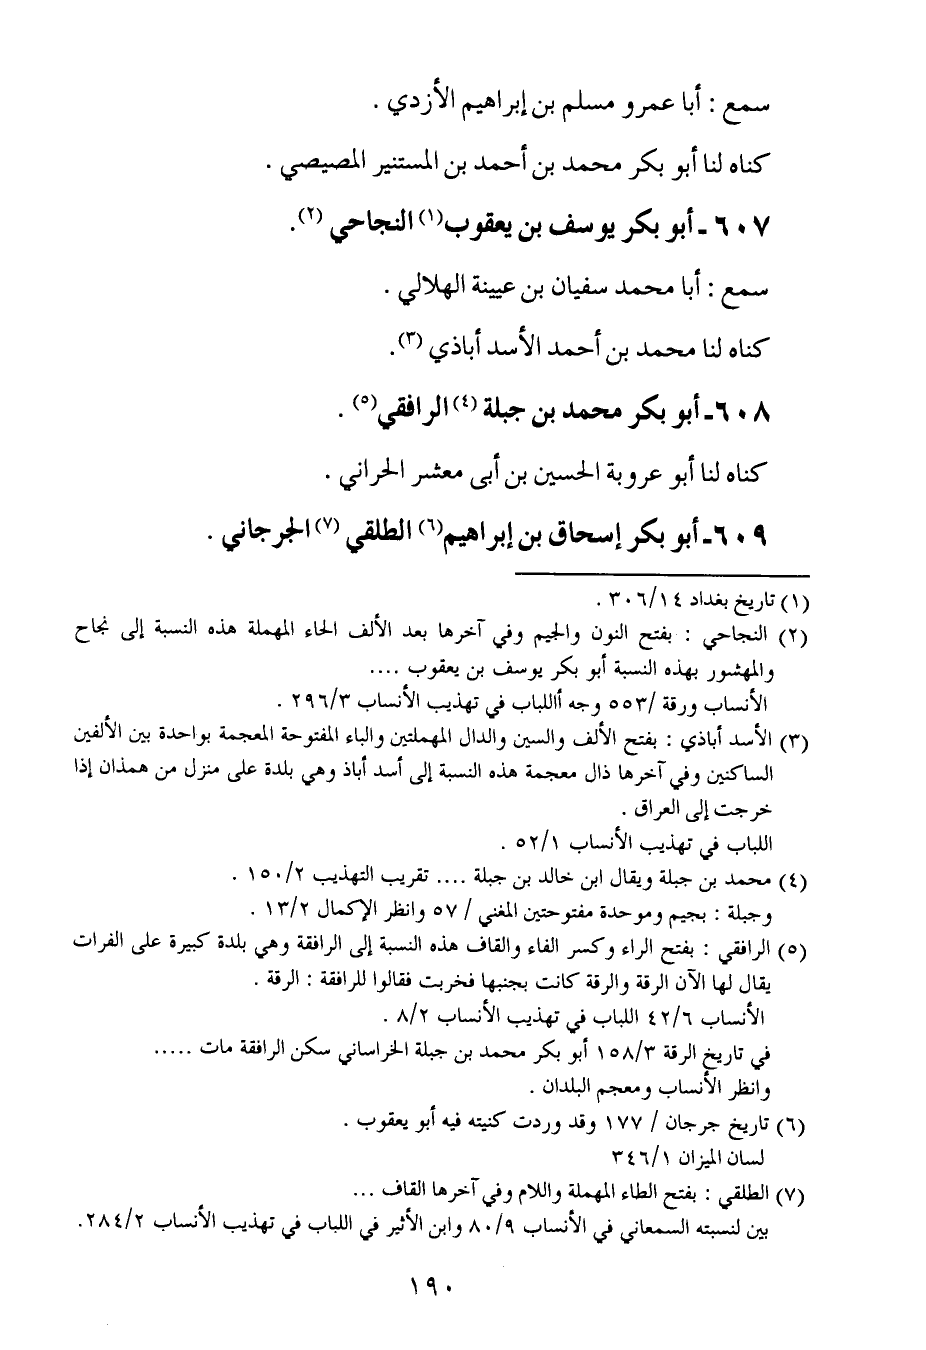 سمع : أبا عمرو مسلم بن إبراهيم الأزدي .
كناه لنا أبو بكر محمد بن أحمد بن المستنير المصيصي .
٦٠٧ ـ أبو بكر يوسف بن يعقوب(١) النجاحي (٢).
سمع : أبا محمد سفيان بن عيينة الهلالي .
كناه لنا محمد بن أحمد الأسد أباذي (٣).
٦٠٨ـ أبو بكر محمد بن جبلة (٤) الرافقي(٥) .
كناه لنا أبو عروبة الحسين بن أبى معشر الحراني .
٦٠٩ـ أبو بكر إسحاق بن إبراهيم(٦) الطلقي (٧) الجرجاني .
(١) تاريخ بغداد ٣٠٦/١٤ .
(٢) النجاحي : بفتح النون والجيم وفي آخرها بعد الألف الحاء المهملة هذه النسبة إلى نجاح
والمهشور بهذه النسبة أبو بكر يوسف بن يعقوب ....
الأنساب ورقة /٥٥٣ وجه أاللباب في تهذيب الأنساب ٢٩٦/٣ .
(٣) الأسد أباذي : بفتح الألف والسين والدال المهملتين والباء المفتوحة المعجمة بواحدة بين الألفين
الساكنين وفي آخرها ذال معجمة هذه النسبة إلى أسد أباذ وهي بلدة على منزل من همذان إذا
خرجت إلى العراق .
اللباب في تهذيب الأنساب ٥٢/١ .
(٤) محمد بن جبلة ويقال ابن خالد بن جبلة .... تقريب التهذيب ١٥٠/٢ .
وجبلة : بجيم وموحدة مفتوحتين المغني / ٥٧ وانظر الإكمال ١٣/٢ .
(٥) الرافقي : بفتح الراء وكسر الفاء والقاف هذه النسبة إلى الرافقة وهي بلدة كبيرة على الفرات
يقال لها الآن الرقة والرقة كانت بجنبها فخربت فقالوا للرافقة : الرقة .
الأنساب ٤٢/٦ اللباب في تهذيب الأنساب ٨/٢ .
في تاريخ الرقة ١٥٨/٣ أبو بكر محمد بن جبلة الخراساني سكن الرافقة مات .....
وانظر الأنساب ومعجم البلدان .
(٦) تاريخ جرجان / ١٧٧ وقد وردت كنيته فيه أبو يعقوب .
لسان الميزان ٣٤٦/١
(٧) الطلقي : بفتح الطاء المهملة واللام وفي آخرها القاف ...
بين لنسبته السمعاني في الأنساب ٨٠/٩ وابن الأثير في اللباب في تهذيب الأنساب ٢٨٤/٢.
١٩٠